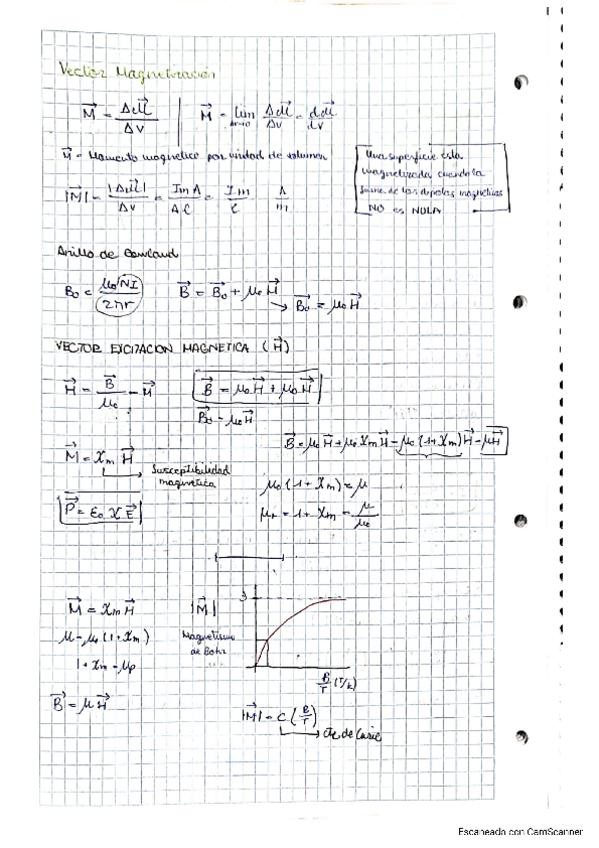 Vector Magnetización
M⃗ = Δm⃗ / ΔV | M⃗ = lim Δv→0 Δm⃗/Δv = dm⃗/dv
M⃗ = Momento magnetico por unidad de volumen
|M⃗| = |ΔM⃗| / ΔV = Im A / A ℓ = Im / ℓ A/m
Una superficie esta
magnetizada cuando la
suma de los dipolos magneticos
NO es NULA
Anillo de Rowland
B₀ = μ₀NI / 2πr B⃗ = B⃗₀ + μ₀ M⃗
→ B⃗₀ = μ₀H⃗
VECTOR EXCITACION MAGNETICA (H⃗)
H⃗ = B⃗/μ₀ - M⃗ B⃗ = μ₀H⃗ + μ₀M⃗
B⃗₀ = μ₀H⃗
B⃗ = μ₀H⃗ + μ₀χmH⃗ = μ₀(1+χm)H⃗ = μH⃗
M⃗ = χm H⃗
Susceptibilidad
magnetica
μ₀(1+χm) = μ
P⃗ = ε₀ χ E⃗
μr = 1 + χm = μ/μ₀
M⃗ = χmH⃗ |M⃗| 3
μ = μ₀(1+χm) Magnetismo
de Bohr
1 + χm = μr
B/T (T/k)
B⃗ = μH⃗
|M⃗| = C (B/T)
→ cte de Curie
Escaneado con CamScanner